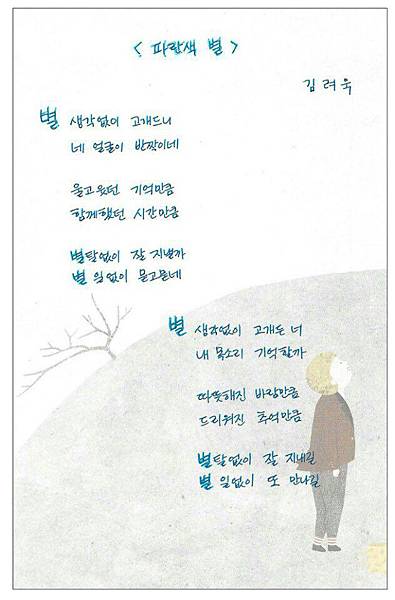 < 파란색 별 >
김려욱
별 생각없이 고개드니
네 얼굴이 반짝이네
울고 웃던 기억만큼
함께했던 시간만큼
별탈없이 잘 지낼까
별 일없이 묻고픈데
별 생각없이 고개든 너
내 목소리 기억할까
따뜻해진 바람만큼
드리워진 추억만큼
별탈없이 잘 지내길
별 일없이 또 만나길